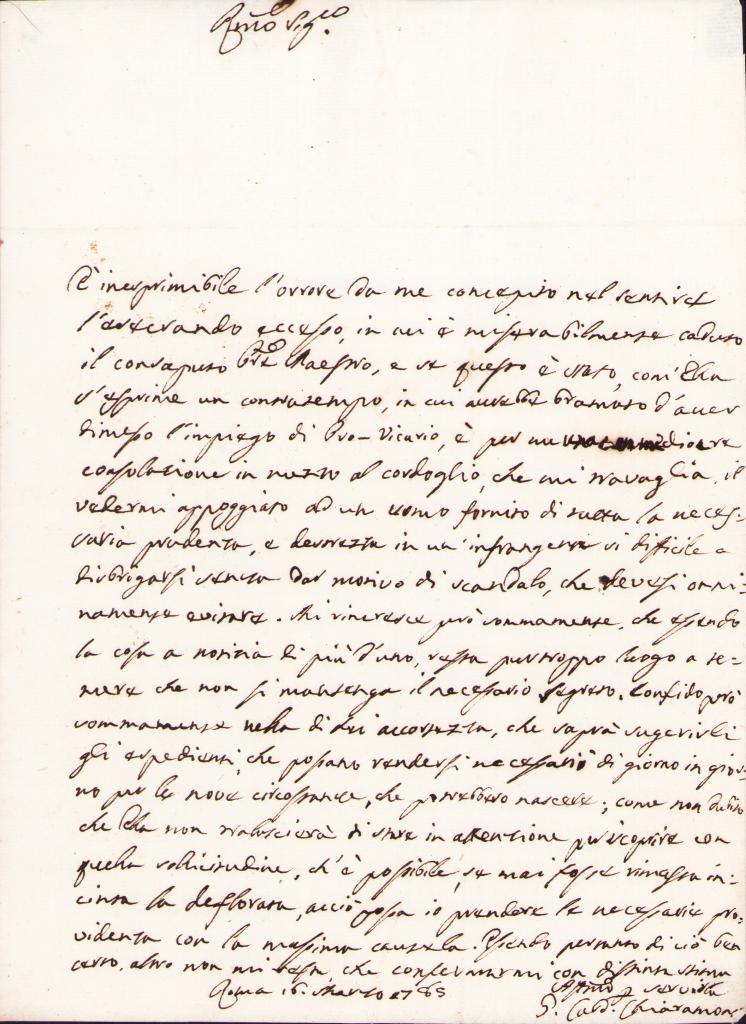 Rmo Sigre
È inesprimibile l'orrore da me concepito nel sentire
l'esecrando eccesso, in cui è miserabilmente caduto
il consaputo Maestro, e se questo è stato, com'Ella
s'esprime un contratempo, in cui avrebbe bramato d'aver
dimesso l'impiego di Pro-Vicario, è per me mediocre
consolazione in mezzo al cordoglio, che mi travaglia, il
vedermi appoggiato ad un uomo fornito di tutta la neces-
saria prudenza, e destrezza in un'infrangente sì difficile a
disbrigarsi senza dar motivo di scandalo, che devesi onni-
namente evitare. Mi rincresce però sommamente, che essendo
la cosa a notizia di più d'uno, resta purtroppo luogo a te-
mere che non si mantenga il necessario segreto. Confido però
sommamente nella di Lei accortezza, che saprà sugerirli
gli espedienti, che possano rendersi necessarii di giorno in gior-
no per le nove circostanze, che potrebbero nascere; come non dubito
che Ella non tralascierà di stare in attenzione per iscoprire con
quella sollicitudine, ch'è possibile, se mai fosse rimasta in-
cinta la deflorata, acciò possa io prendere le necessarie pro-
videnze con la massima cautela. Essendo pertanto di ciò ben
certo, altro non mi resta, che confermarmi con distinta stima
Roma 16. Marzo 1785
Affmo per servirla
G. Card. Chiaramonti